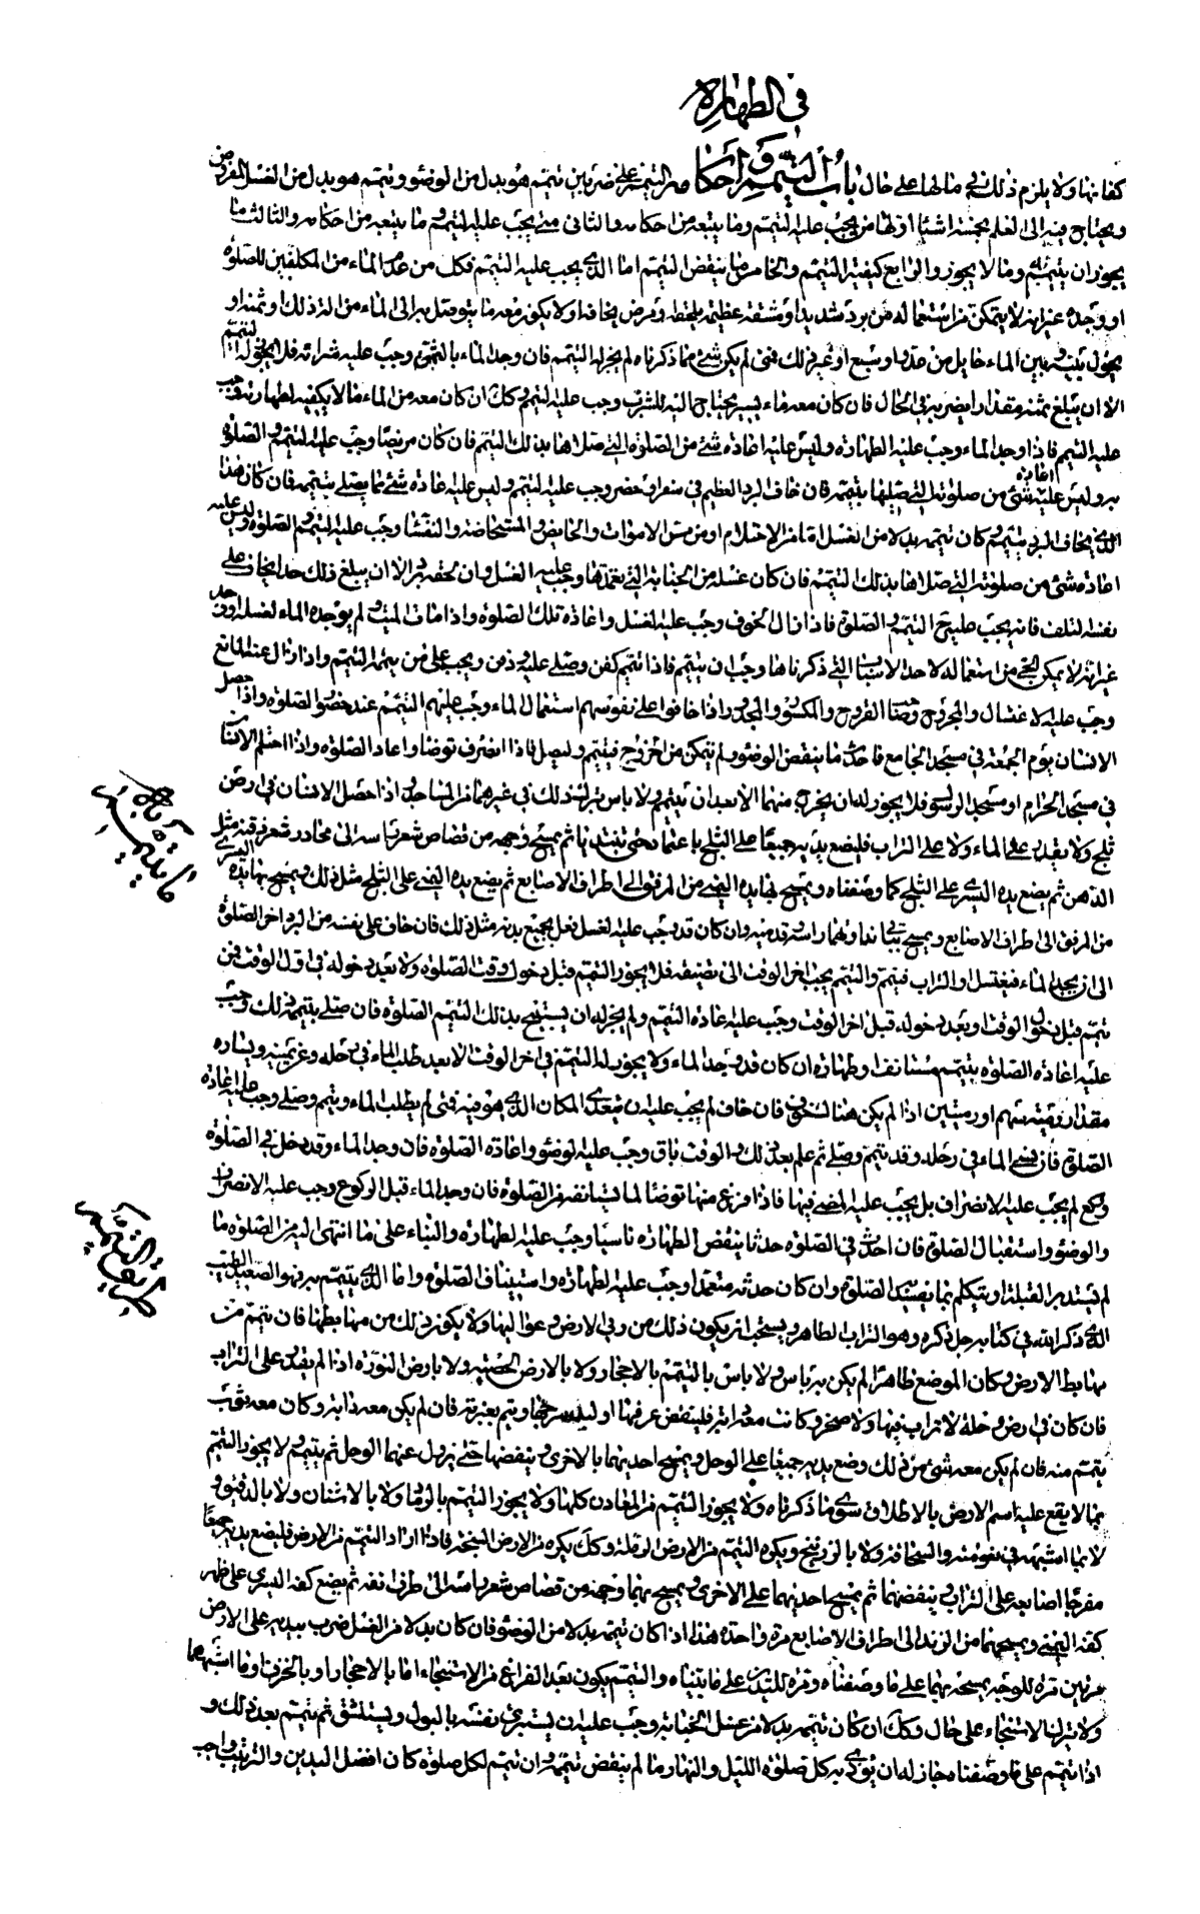 في الطهارة
كفانها ولا يلزم ذلك في مالها على حال باب التيمم وأحكامه التيمم على ضربين تيمم هو بدل من الوضوء وتيمم هو بدل من الغسل المفروض
ويحتاج فيه الى العلم بخمسة اشياء اولها من يجب عليه التيمم وما يتبعه من احكامه والثاني متى يجب عليه التيمم وما يتبعه من احكامه والثالث ما
يجوز ان يتيمم به وما لا يجوز والرابع كيفية التيمم والخامس ما ينقض التيمم اما الذي يجب عليه التيمم فكل من عدم الماء من المكلفين للصلوة
او وجده غير انه لا يتمكن من استعماله من برد شديد او مشقة عظيمة يلحقه او مرض يخافه او لا يكون معه ما يتوصل به الى الماء من الة ذلك او ثمنه او
يحول بينه وبين الماء حايل من عدو او سبع او غير ذلك فمتى لم يكن شئ مما ذكرناه لم يجز له التيمم فان وجد الماء بالثمن وجب عليه شرائه فلا يجوز له التيمم
الا ان يبلغ ثمنه مقدارا يضر به في الحال فان كان معه ماء يسير يحتاج اليه للشرب وجب عليه التيمم وكك ان كان معه من الماء ما لا يكفيه لطهارته وجب
عليه التيمم فاذا وجد الماء وجب عليه الطهارة وليس عليه اعادة شئ من الصلوة التي صلاها بذلك التيمم فان كان مريضا وجب عليه التيمم والصلوة
به وليس عليه اعادة شئ من صلوته التي صليها بتيممه فان خاف البرد العظيم في سفر او حضر وجب عليه التيمم وليس عليه اعادة شئ مما يصلي بتيممه فان كان هذا
الذي يخاف البرد يتيمم كان تيممه بدلا من الغسل اما من الاحتلام او من مس الاموات والحايض والمستحاضة والنفساء وجب عليه التيمم والصلوة وليس عليه
اعادة شئ من صلوته التي صلاها بذلك التيمم فان كان غسله من الجنابة التي تعمدها وجب عليه الغسل وان لحقه برد الا ان يبلغ ذلك حدا يخاف على
نفسه التلف فانه يجب عليه التيمم والصلوة فاذا زال الخوف وجب عليه الغسل واعادة تلك الصلوة واذا مات الميت ولم يوجد الماء لغسله او وجد
غير انه لا يمكن الحي من استعماله لاحد الاسباب التي ذكرناها وجب ان ييمم فاذا تيمم كفن وصلى عليه ودفن ويجب على من ييممه التيمم واذا زال عنه المانع
وجب عليه الاغتسال والمجروح وصاحب القروح والمكسور والمجدور اذا خافوا على نفوسهم استعمال الماء وجب عليهم التيمم عند حضور الصلوة واذا حصل
الانسان يوم الجمعة في مسجد الجامع فاحدث ما ينقض الوضوء ولم يتمكن من الخروج فيتيمم وليصل فاذا انصرف توضأ واعاد الصلوة واذا احتلم الانسان
في مسجد الحرام او مسجد الرسول فلا يجوز له ان يخرج منهما الا بعد ان يتيمم ولا باس بترك ذلك في غيرهما من المساجد اذا حصل الانسان في ارض
ثلج ولا يقدر على الماء ولا على التراب فليضع يديه جميعا على الثلج باعتماد حتى تبتلا ثم يمسح وجهه من قصاص شعر راسه الى محادر شعر ذقنه مثل
الدهن ثم يضع يده اليسرى على الثلج كما وصفناه ويمسح بها يده اليمنى من المرفق الى اطراف الاصابع ثم يضع يده اليمنى على الثلج مثل ذلك ويمسح بها يده اليسرى
من المرفق الى اطراف الاصابع ويمسح بباقي نداوتهما راسه وقدميه وان كان قد وجب عليه الغسل فعل بجميع بدنه مثل ذلك فان خاف على نفسه من البرد اخر الصلوة
الى ان يجد الماء فيغتسل او التراب فيتيمم والتيمم يجب اخر الوقت الى تضيقه فلا يجوز التيمم قبل دخول وقت الصلوة ولا بعد دخوله في اول الوقت فمن
تيمم قبل دخول الوقت او بعد دخوله قبل اخر الوقت وجب عليه اعادة التيمم ولم يجز له ان يستبيح بذلك التيمم الصلوة فان صلى بتيممه ذلك وجب
عليه اعادة الصلوة بتيمم مستانف او طهارة ان كان قد وجد الماء ولا يجوز له التيمم في اخر الوقت الا بعد طلب الماء في رحله وعن يمينه ويساره
مقدار رمية سهم او رميتين اذا لم يكن هناك خوف فان خاف لم يجب عليه ان يتعدى المكان الذي هو فيه فمتى لم يطلب الماء وتيمم وصلى وجب عليه اعادة
الصلوة فان نسي الماء في رحله وقد تيمم وصلى ثم علم بعد ذلك والوقت باق وجب عليه الوضوء واعادة الصلوة فان وجد الماء وقد دخل في الصلوة
وركع لم يجب عليه الانصراف بل يجب عليه المضي فيها فاذا فرغ منها توضأ لما يستانف من الصلوة فان وجد الماء قبل الركوع وجب عليه الانصراف
والوضوء واستقبال الصلوة فان احدث في الصلوة حدثا ينقض الطهارة ناسيا وجب عليه الطهارة والبناء على ما انتهى اليه من الصلوة ما
لم يستدبر القبلة او يتكلم بما يفسد الصلوة وان كان حدثه متعمدا وجب عليه الطهارة واستيناف الصلوة واما الذي يتيمم به فهو الصعيد الطيب
الذي ذكر الله في كتابه جل ذكره وهو التراب الطاهر ويستحب ان يكون ذلك من ربى الارض وعواليها ولا يكون ذلك من مهابطها فان تيمم من
مهابط الارض وكان الموضع طاهرا لم يكن به باس ولا باس بالتيمم بالاحجار ولا بالارض الجصية ولا بارض النورة اذا لم يقدر على التراب
فان كان في ارض وحلة لا تراب فيها ولا صخر وكانت معه دابة فلينفض عرفها او لبد سرجها ويتيمم بغبرته فان لم يكن معه دابة وكان معه ثوب
يتيمم منه فان لم يكن معه شئ من ذلك وضع يديه جميعا على الوحل ويمسح احديهما بالاخرى وينفضهما حتى يزول عنهما الوحل ثم يتيمم ولا يجوز التيمم
بما لا يقع عليه اسم الارض بالاطلاق سوى ما ذكرناه ولا يجوز التيمم من المعادن كلها ولا يجوز التيمم بالرماد ولا بالاشنان ولا بالدقيق و
لا بما اشبهه في نعومته والسحاقة ولا بالزرنيخ ويكره التيمم من الارض الرملة وكك يكره من الارض السبخة فاذا اراد التيمم من الارض فليضع يديه جميعا
مفرجا اصابعه على التراب وينفضهما ثم يمسح احديهما على الاخرى ويمسح بهما وجهه من قصاص شعر راسه الى طرف انفه ثم يضع كفه اليسرى على ظهر
كفه اليمنى ويمسحهما من الزند الى اطراف الاصابع مرة واحدة هذا اذا كان تيممه بدلا من الوضوء فان كان بدلا من الغسل ضرب بيديه على الارض
مرتين مرة للوجه يمسحه بهما على ما وصفناه ومرة لليدين على ما بيناه والتيمم يكون بعد الفراغ من الاستنجاء اما بالاحجار او بالخرق او ما اشبههما
ولا يترك الاستنجاء على حال وكك ان كان تيممه بدلا من غسل الجنابة وجب عليه ان يستبرئ نفسه بالبول ويستنشق ثم يتيمم بعد ذلك و
اذا تيمم على ما وصفناه جاز له ان يؤدي به كل صلوة الليل والنهار ما لم ينقض تيممه وان تيمم لكل صلوة كان افضل اليدين والترتيب واجب